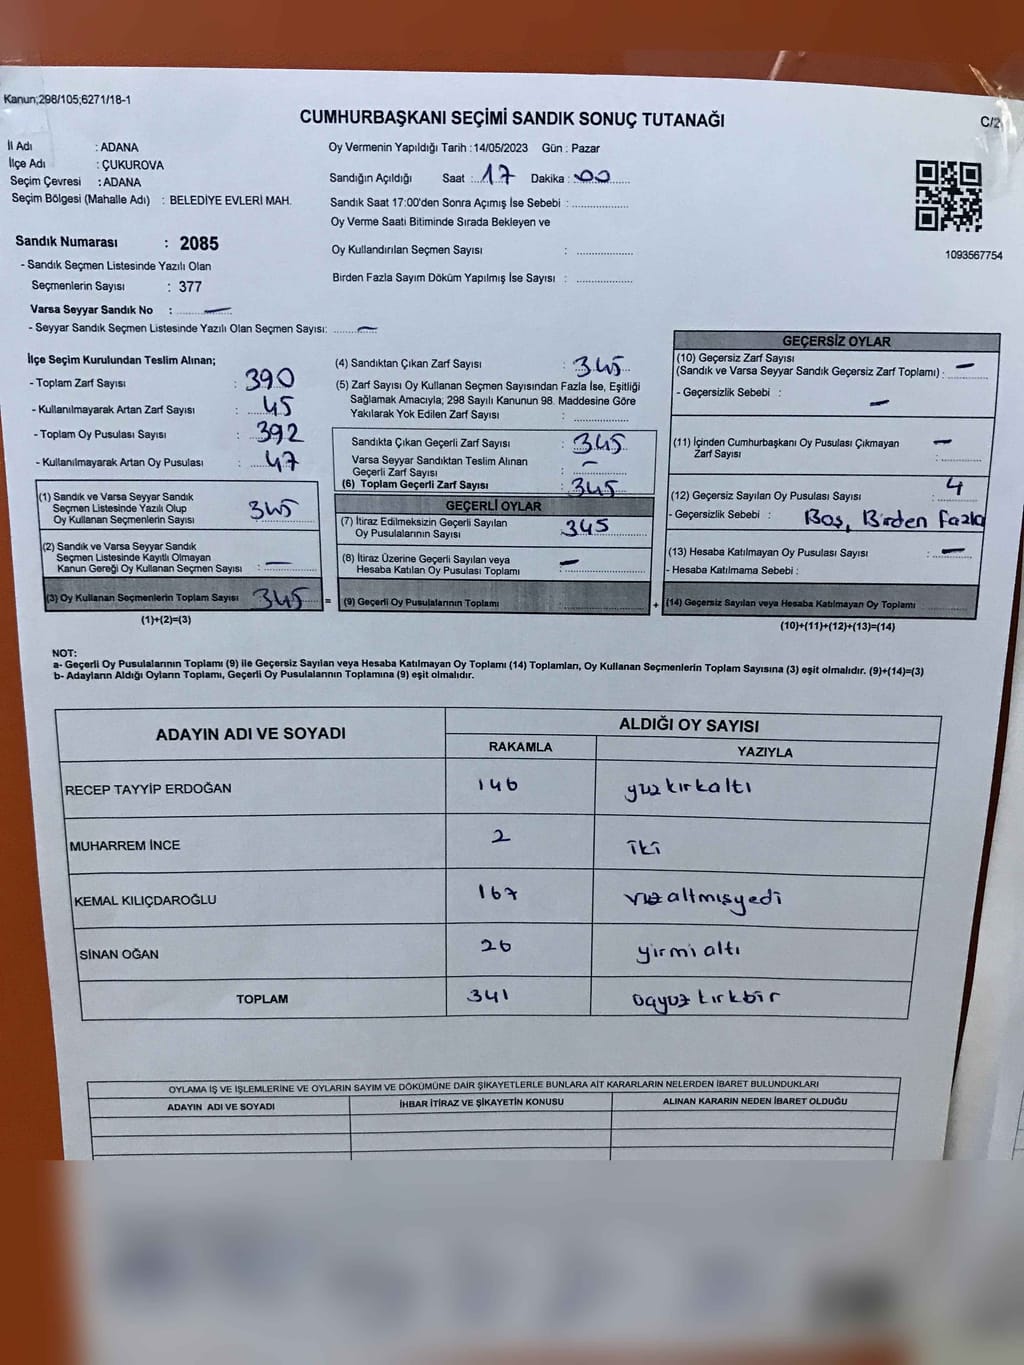 Kanun;298/105;6271/18-1
CUMHURBAŞKANI SEÇİMİ SANDIK SONUÇ TUTANAĞI
C/2
İl Adı : ADANA
İlçe Adı : ÇUKUROVA
Seçim Çevresi : ADANA
Seçim Bölgesi (Mahalle Adı) : BELEDİYE EVLERİ MAH.
Oy Vermenin Yapıldığı Tarih :14/05/2023 Gün : Pazar
Sandığın Açıldığı Saat : 17 Dakika : 00
Sandık Saat 17:00'den Sonra Açımış İse Sebebi :
Oy Verme Saati Bitiminde Sırada Bekleyen ve
Oy Kullandırılan Seçmen Sayısı :
Birden Fazla Sayım Döküm Yapılmış İse Sayısı :
1093567754
Sandık Numarası : 2085
- Sandık Seçmen Listesinde Yazılı Olan
Seçmenlerin Sayısı : 377
Varsa Seyyar Sandık No : —
- Seyyar Sandık Seçmen Listesinde Yazılı Olan Seçmen Sayısı: —
İlçe Seçim Kurulundan Teslim Alınan;
- Toplam Zarf Sayısı : 390
- Kullanılmayarak Artan Zarf Sayısı : 45
- Toplam Oy Pusulası Sayısı : 392
- Kullanılmayarak Artan Oy Pusulası : 47
(1) Sandık ve Varsa Seyyar Sandık
Seçmen Listesinde Yazılı Olup
Oy Kullanan Seçmenlerin Sayısı 345
(2) Sandık ve Varsa Seyyar Sandık
Seçmen Listesinde Kayıtlı Olmayan
Kanun Gereği Oy Kullanan Seçmen Sayısı : —
(3) Oy Kullanan Seçmenlerin Toplam Sayısı 345
(1)+(2)=(3)
(4) Sandıktan Çıkan Zarf Sayısı : 345
(5) Zarf Sayısı Oy Kullanan Seçmen Sayısından Fazla İse, Eşitliği
Sağlamak Amacıyla; 298 Sayılı Kanunun 98. Maddesine Göre
Yakılarak Yok Edilen Zarf Sayısı :
Sandıkta Çıkan Geçerli Zarf Sayısı : 345
Varsa Seyyar Sandıktan Teslim Alınan
Geçerli Zarf Sayısı : —
(6) Toplam Geçerli Zarf Sayısı : 345
GEÇERLİ OYLAR
(7) İtiraz Edilmeksizin Geçerli Sayılan
Oy Pusulasının Sayısı 345
(8) İtiraz Üzerine Geçerli Sayılan veya
Hesaba Katılan Oy Pusulası Toplamı : —
= (9) Geçerli Oy Pusulalarının Toplamı
GEÇERSİZ OYLAR
(10) Geçersiz Zarf Sayısı
(Sandık ve Varsa Seyyar Sandık Geçersiz Zarf Toplamı) : —
- Geçersizlik Sebebi : —
(11) İçinden Cumhurbaşkanı Oy Pusulası Çıkmayan
Zarf Sayısı : —
(12) Geçersiz Sayılan Oy Pusulası Sayısı : 4
- Geçersizlik Sebebi : Boş, Birden Fazla
(13) Hesaba Katılmayan Oy Pusulası Sayısı : —
- Hesaba Katılmama Sebebi :
+ (14) Geçersiz Sayılan veya Hesaba Katılmayan Oy Toplamı
(10)+(11)+(12)+(13)=(14)
NOT:
a- Geçerli Oy Pusulalarının Toplamı (9) ile Geçersiz Sayılan veya Hesaba Katılmayan Oy Toplamı (14) Toplamları, Oy Kullanan Seçmenlerin Toplam Sayısına (3) eşit olmalıdır. (9)+(14)=(3)
b- Adayların Aldığı Oyların Toplamı, Geçerli Oy Pusulalarının Toplamına (9) eşit olmalıdır.
ADAYIN ADI VE SOYADI ALDIĞI OY SAYISI
RAKAMLA YAZIYLA
RECEP TAYYİP ERDOĞAN 146 yüzkırkaltı
MUHARREM İNCE 2 iki
KEMAL KILIÇDAROĞLU 167 yüzaltmışyedi
SİNAN OĞAN 26 yirmi altı
TOPLAM 341 üçyüz kırkbir
OYLAMA İŞ VE İŞLEMLERİNE VE OYLARIN SAYIM VE DÖKÜMÜNE DAİR ŞİKAYETLERLE BUNLARA AİT KARARLARIN NELERDEN İBARET BULUNDUKLARI
ADAYIN ADI VE SOYADI İHBAR İTİRAZ VE ŞİKAYETİN KONUSU ALINAN KARARIN NEDEN İBARET OLDUĞU